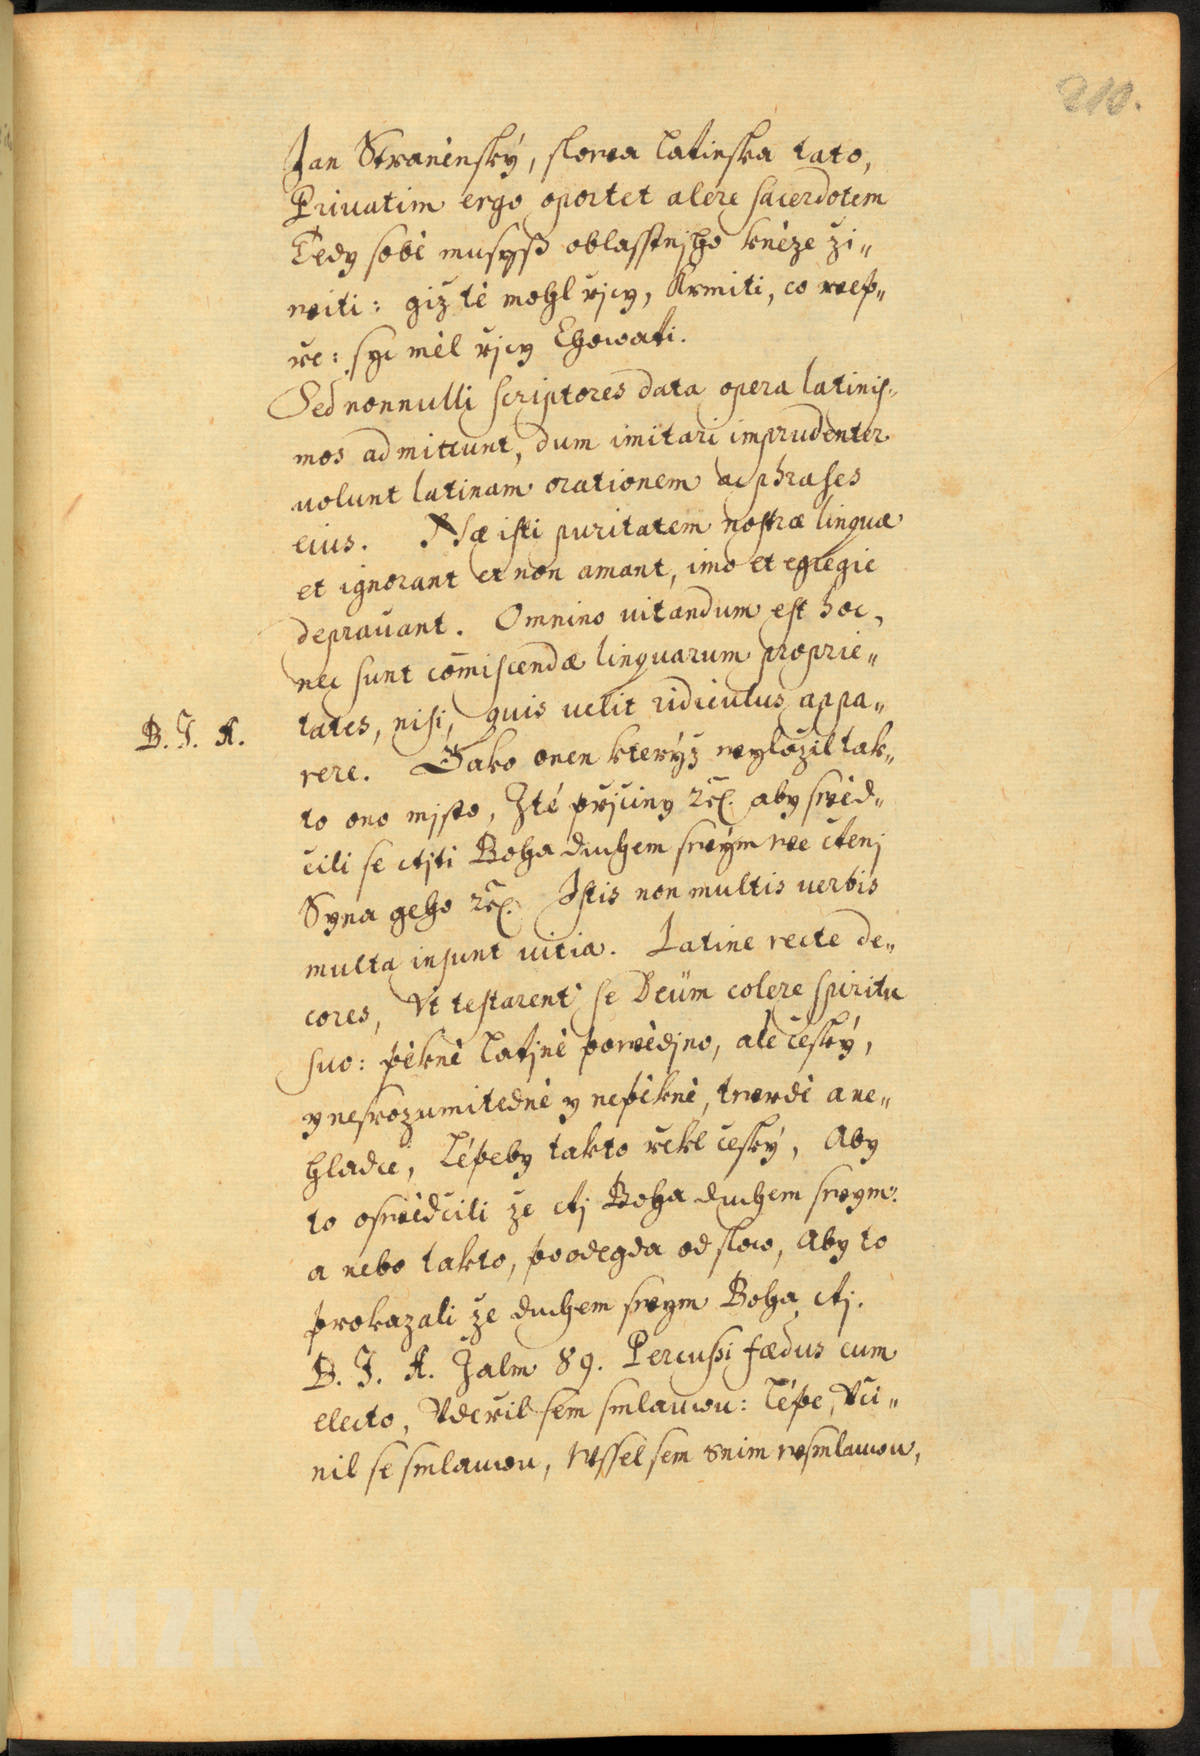 210.
Jan Stranènský, slowa Latinska tato,
Priuatim ergo oportet alere sacerdotem
Tedy sobè musyß oblasstnjho knèze ži„
witi: giž tè mohl řjcy, Krmiti, co wep„
ře: syc mèl řjcy Chowati.
Sed nonnulli scriptores data opera latinis„
mos admittunt, dum imitari imprudenter
uolunt latinam orationem ac phrases
eius. Næ isti puritatem nostræ linguæ
et ignorant et non amant, imo et egregie
deprauant. Omnino uitandum est hoc,
nec sunt com̄iscendæ linguarum proprie„
tates, nisi, quis uelit ridiculus appa„
B. J. A.
rere. Jako onen kterýž wyložil tak„
to ono mjsto, Zté přjčiny ꝛč. aby swèd„
čili se ctjti Boha duchem swým we čtenj
Syna geho ꝛč. Istis non multis uerbis
multa insunt uitia. Latine recte de„
cores, Vt testarent se Deum colere spiritu
suo: pèknè Latjnè powèdjno, ale český,
y nesrozumitedlnè y nepèknè, twrdè a ne„
hladce, Lépeby takto řekl český, Aby
to oswèdčili že ctj Boha duchem swym:
a nebo takto, poodegda od slow, Aby to
prokazali že duchem swym Boha ctj.
B. J. A. Žalm 89. Percussi fœdus cum
electo, Vdeřil sem smlauwu: Lépe, Vči„
nil se smlauwu, Wssel sem snim wsmlauwu,
MZK
MZK